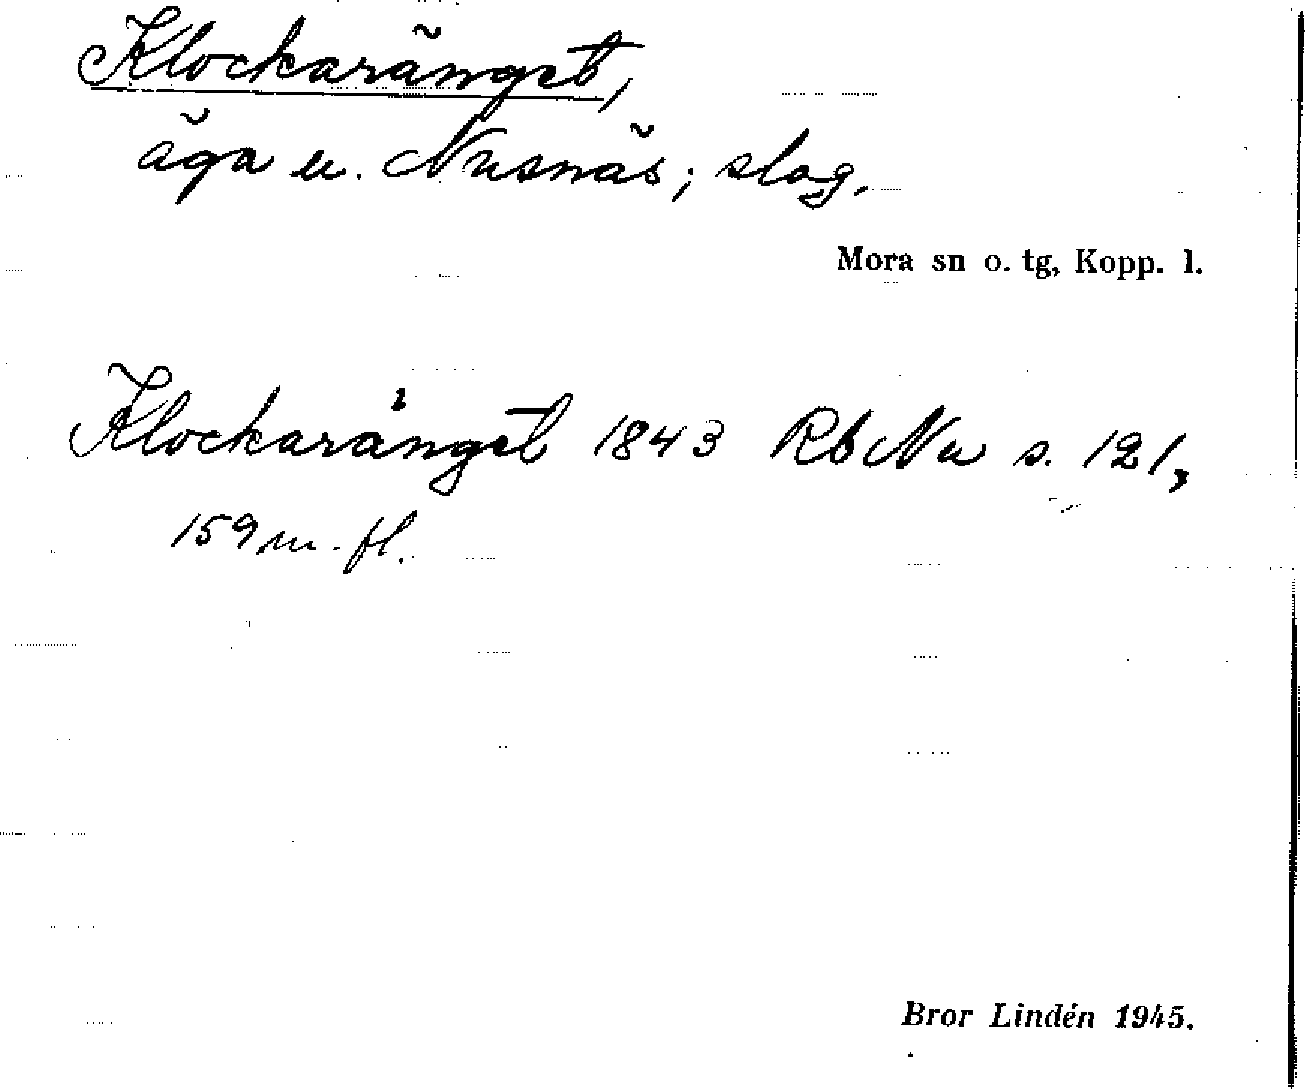 Klockaränget,
äga u. Nusnäs; slog.
Mora sn o. tg, Kopp. l.
Klockaränget 1843 RbNu s. 121,
159 m. fl.
Bror Lindén 1945.